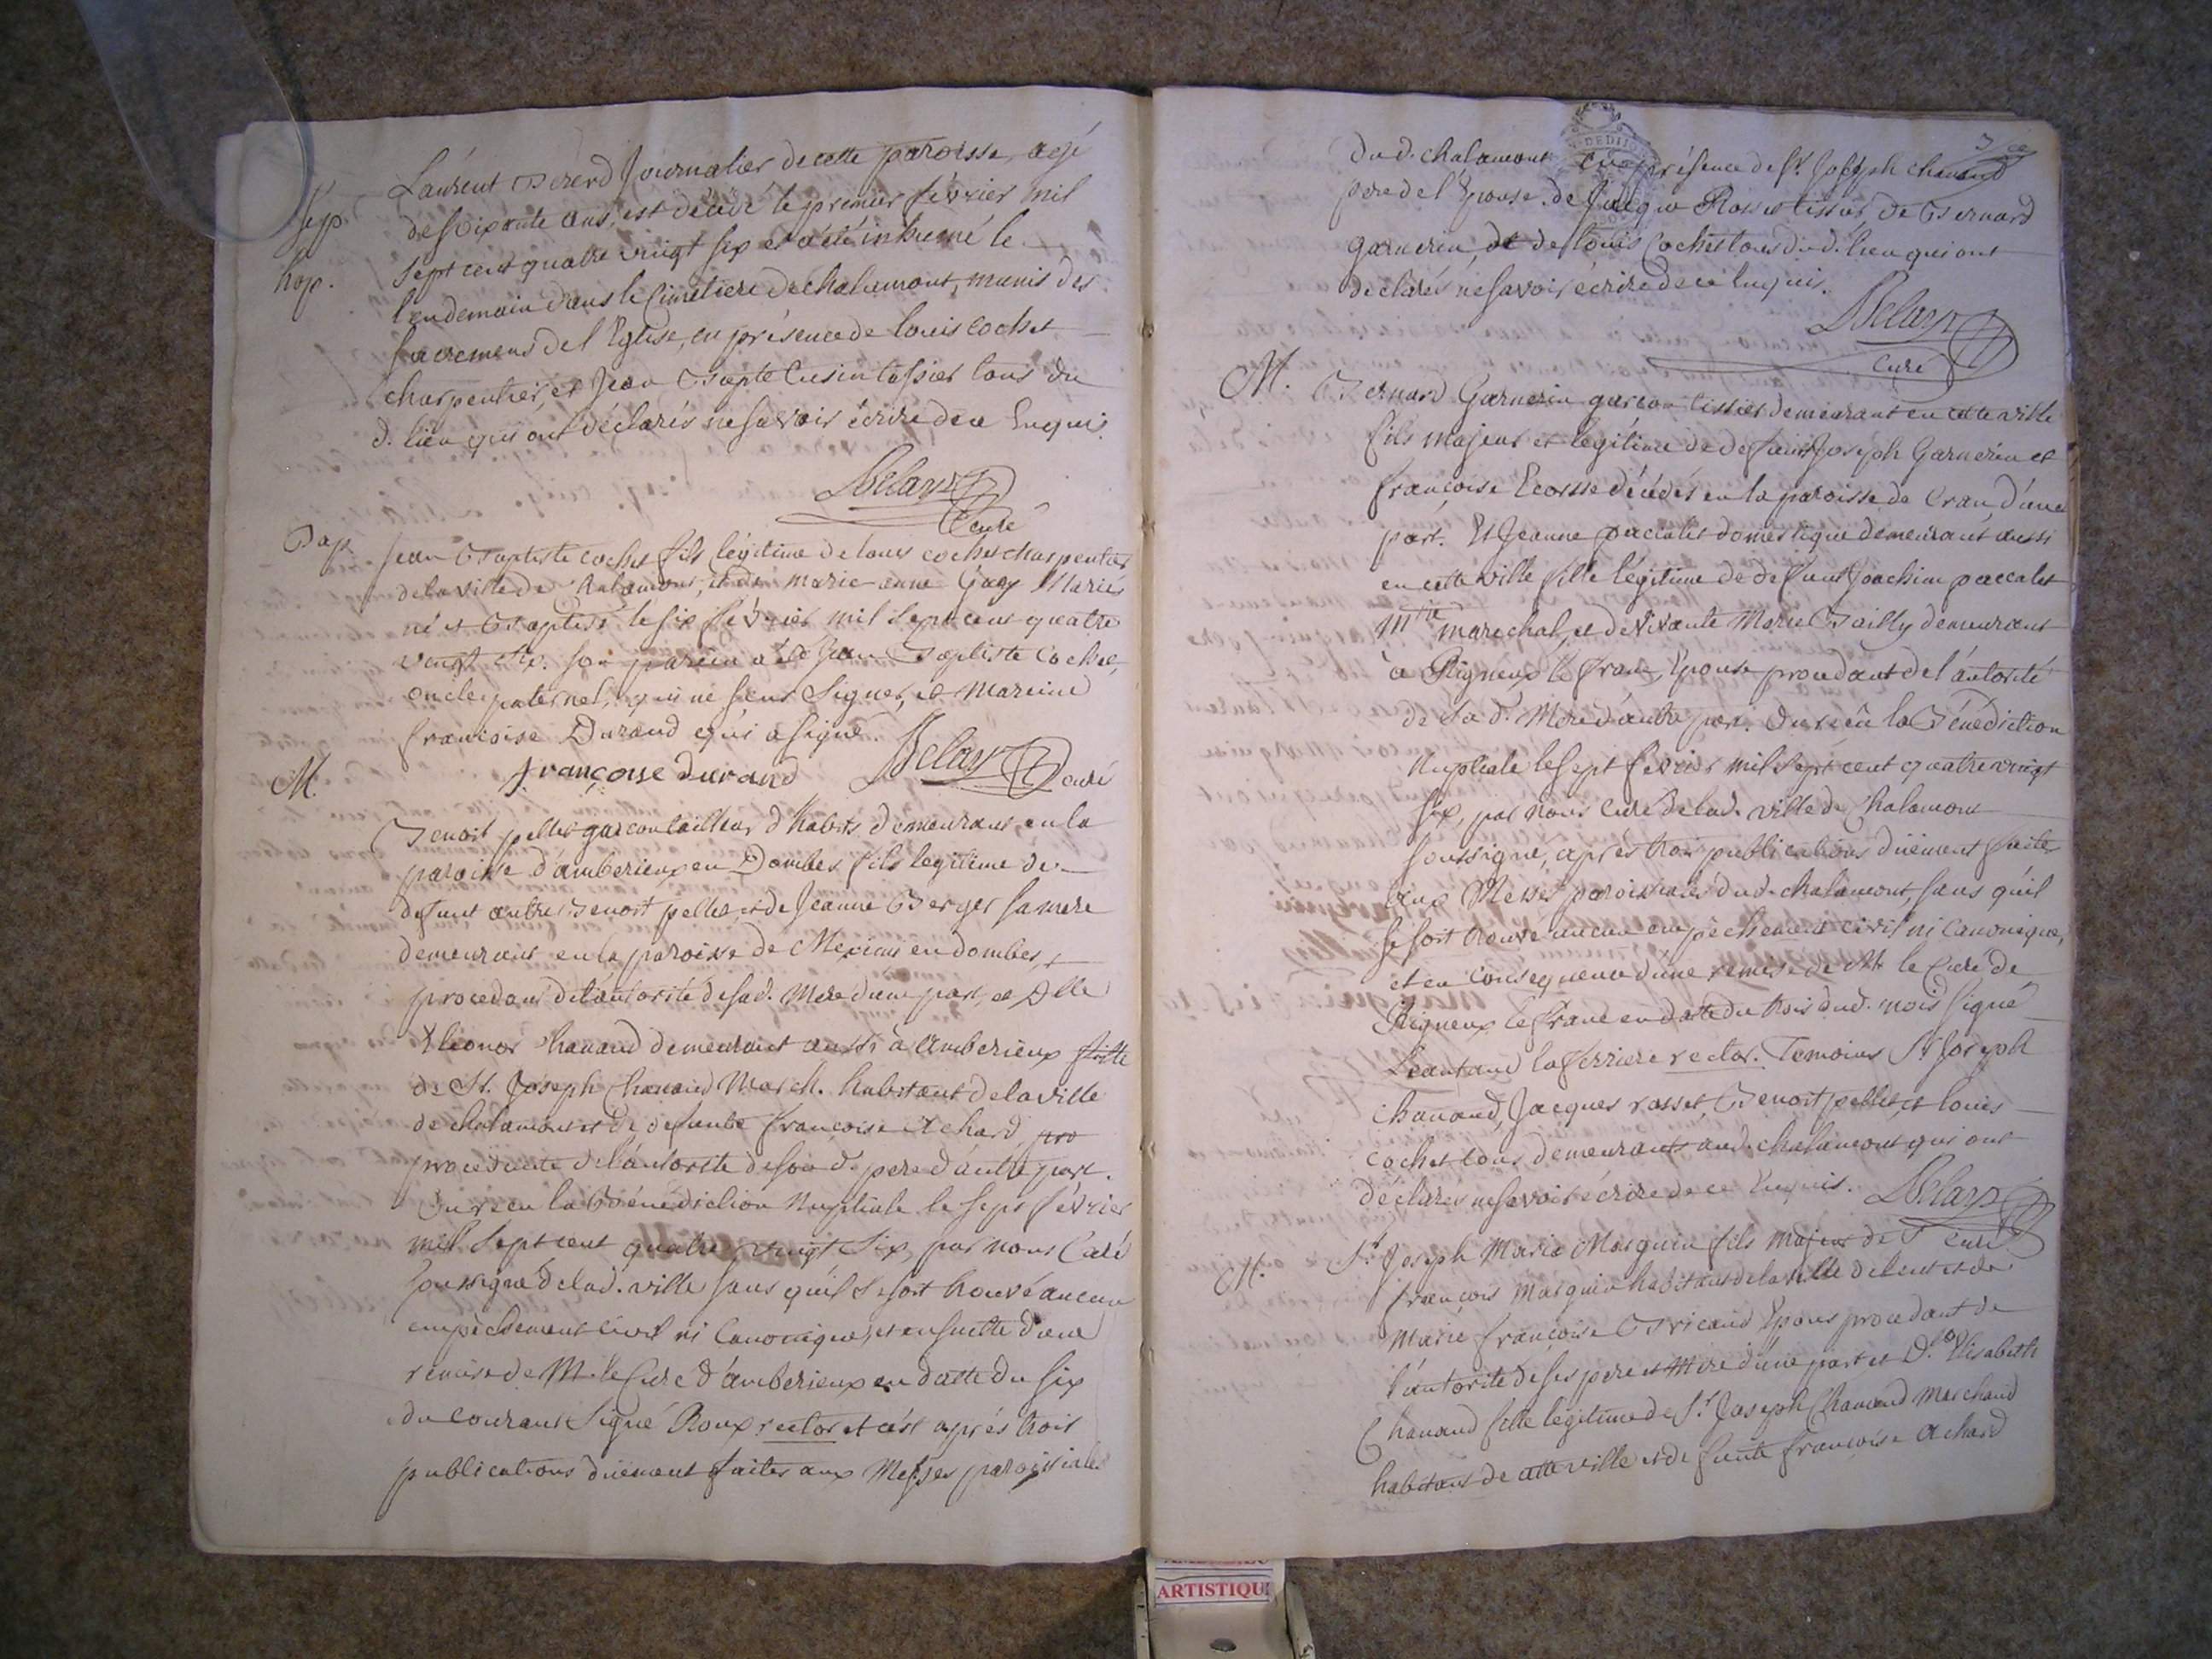 Sep.
hop.
Laurent Bererd Journalier de cette paroisse, agé
de soixante ans, est décédé le premier février mil
sept cent quatre vingt six et a été inhumé le
lendemain dans le Cimetiere de chalamont, munis des
sacremens de l'Eglise, en présence de louis cochet
charpentier, et Jean Bapte Cusin tissier tous du
d. lieu qui ont déclarés ne savoir écrire de ce Enquis.
Curé
Bap.
Jean Baptiste cochet fils légitime de louis cochet charpentier
de la ville de Chalamont, et de marie anne Gagy Mariés
né et Baptisé le six février mil sept cent quatre
vingt six. son parein a été Jean Baptiste Cochet,
oncle paternel, qui ne seut Signer, et Mareine
francoise Durand qui a signé.
françoise durand
curé
M.
Benoit pellet garcon tailleur d'habits demeurant en la
paroisse d'amberieux en Dombes fils legitime de
defunt autre Benoit pellet, et de Jeanne Berger sa mere
demeurant en la paroisse de Meximi en dombes, et
procedant de l'autorité de sad. Mere d'une part, et Dlle
Eleonor Chanand demeurant aussi à Amberieux fille
de St. Joseph Chanand March. habitant de la ville
de chalamont et de defunte francoise Achard pro
procedante de l'autorité de son d. pere d'autre part.
On recu la Bénédiction Nuptiale le sept février
mil sept cent quatre vingt six, par nous Curé
soussigné de lad. ville sans qu'il se soit trouvé aucun
empèchement civil ni Canonique, et ensuitte d'une
remise de Mr. le Curé d'ambérieux en datte du six
du courant Signé Roux rector et c'est aprés trois
publications düement faites aux Messes paroissiales
3
du d. chalamont En présence de Sr. Joseph chanand
pere de l'Epouse. de Jacque Rosset tissier, de Bernard
garnerin, et de louis Cochet tous du d. lieu qui ont
declarés ne savoir écrire de ce Enquis.
Curé
M.
Bernard Garnerin garcon tissier demeurant en cette ville
fils majeur et légitime de defunt Joseph Garnerin et
francoise Ecosse décédés en la paroisse de Cran, d'une
part. Et Jeanne paccalet domestique demeurant aussi
en cette ville fille légitime de defunt Joachim paccalet
Mtre marechal, et de vivante Marie Bailly demeurant
à Rigneux le franc, Epouse procedant de l'autorité
de sa d. Mere d'autre part. On recû la Bénédiction
Nuptiale le sept fevrier mil sept cent quatre vingt
six, par nous Curé de lad. ville de Chalamont
soussigné, aprés trois publications düement faites
aux Messes paroissiales dud. chalamont, sans qu'il
se soit trouvé aucun empèchement civil ni Canonique,
et en consequence d'une remise de Mr le Curé de
Rigneux le franc en datte du trois dud. mois Signé
laferriere rector. Temoins Sr Joseph
Chanand, Jacques rosset, Benoit pellet, et louis
cochet tous demeurants aud. chalamont qui ont
déclarés ne savoir écrire de ce Enquis.
curé
M.
Sr. Joseph Marie Marguin fils majeur de Sr
francois Marguin habitant de la ville de lent et de
Marie francoise Bricaud Epoux procedant de
l'autorité de ses pere et Mere d'une part et Dlle Elisabeth
Chanand fille légitime de Sr. Joseph Chanand Marchand
habitant de cette ville et de funte francoise Achard
ARTISTIQUE